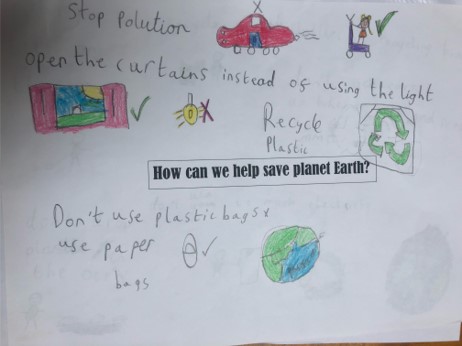 Stop Polution
open the curtains instead of using the light
Recycle
Plastic
How can we help save planet Earth?
Don't use plastic bags x
use paper
bags